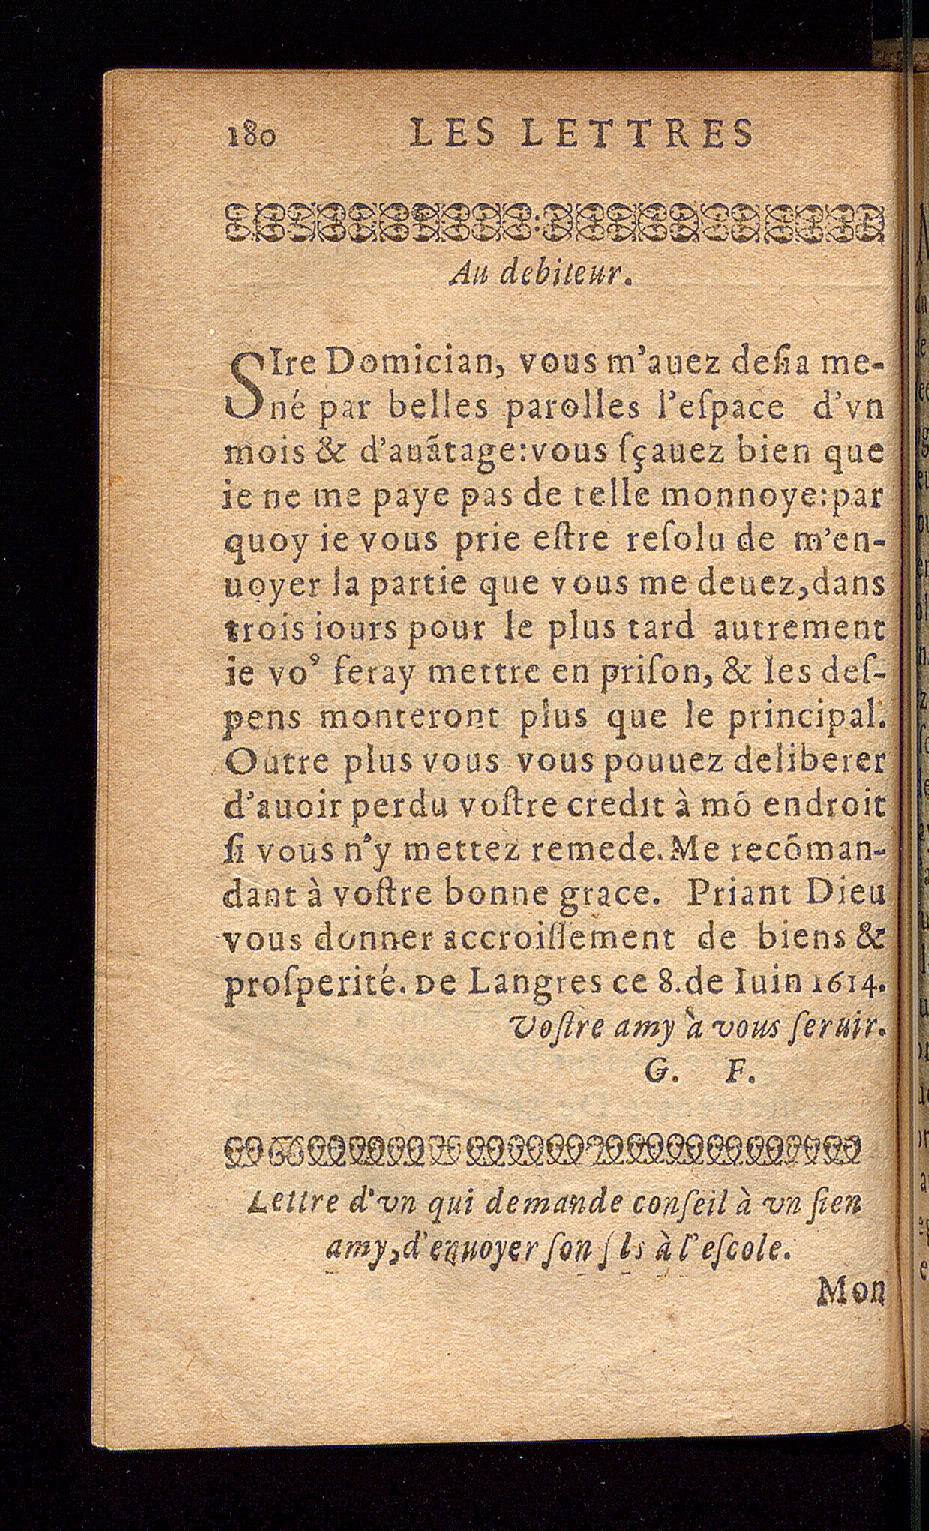 180 LES LETTRES
Au debiteur.
SIre Domician, vous m'auez desia me-
né par belles parolles l'eſpace d'vn
mois & d'auãtage: vous ſçauez bien que
ie ne me paye pas de telle monnoye: par
quoy ie vous prie eſtre reſolu de m'en-
uoyer la partie que vous me deuez, dans
trois iours pour le plus tard autrement
ie voꝰ feray mettre en priſon, & les deſ-
pens monteront plus que le principal.
Outre plus vous vous pouuez deliberer
d'auoir perdu voſtre credit à mõ endroit
ſi vous n'y mettez remede. Me recõman-
dant à voſtre bonne grace. Priant Dieu
vous donner accroiſſement de biens &
proſperité. De Langres ce 8. de Iuin 1614.
Voſtre amy à vous ſeruir.
G. F.
Lettre d'vn qui demande conſeil à vn ſien
amy, d'enuoyer ſon fils à l'eſcole.
Mon